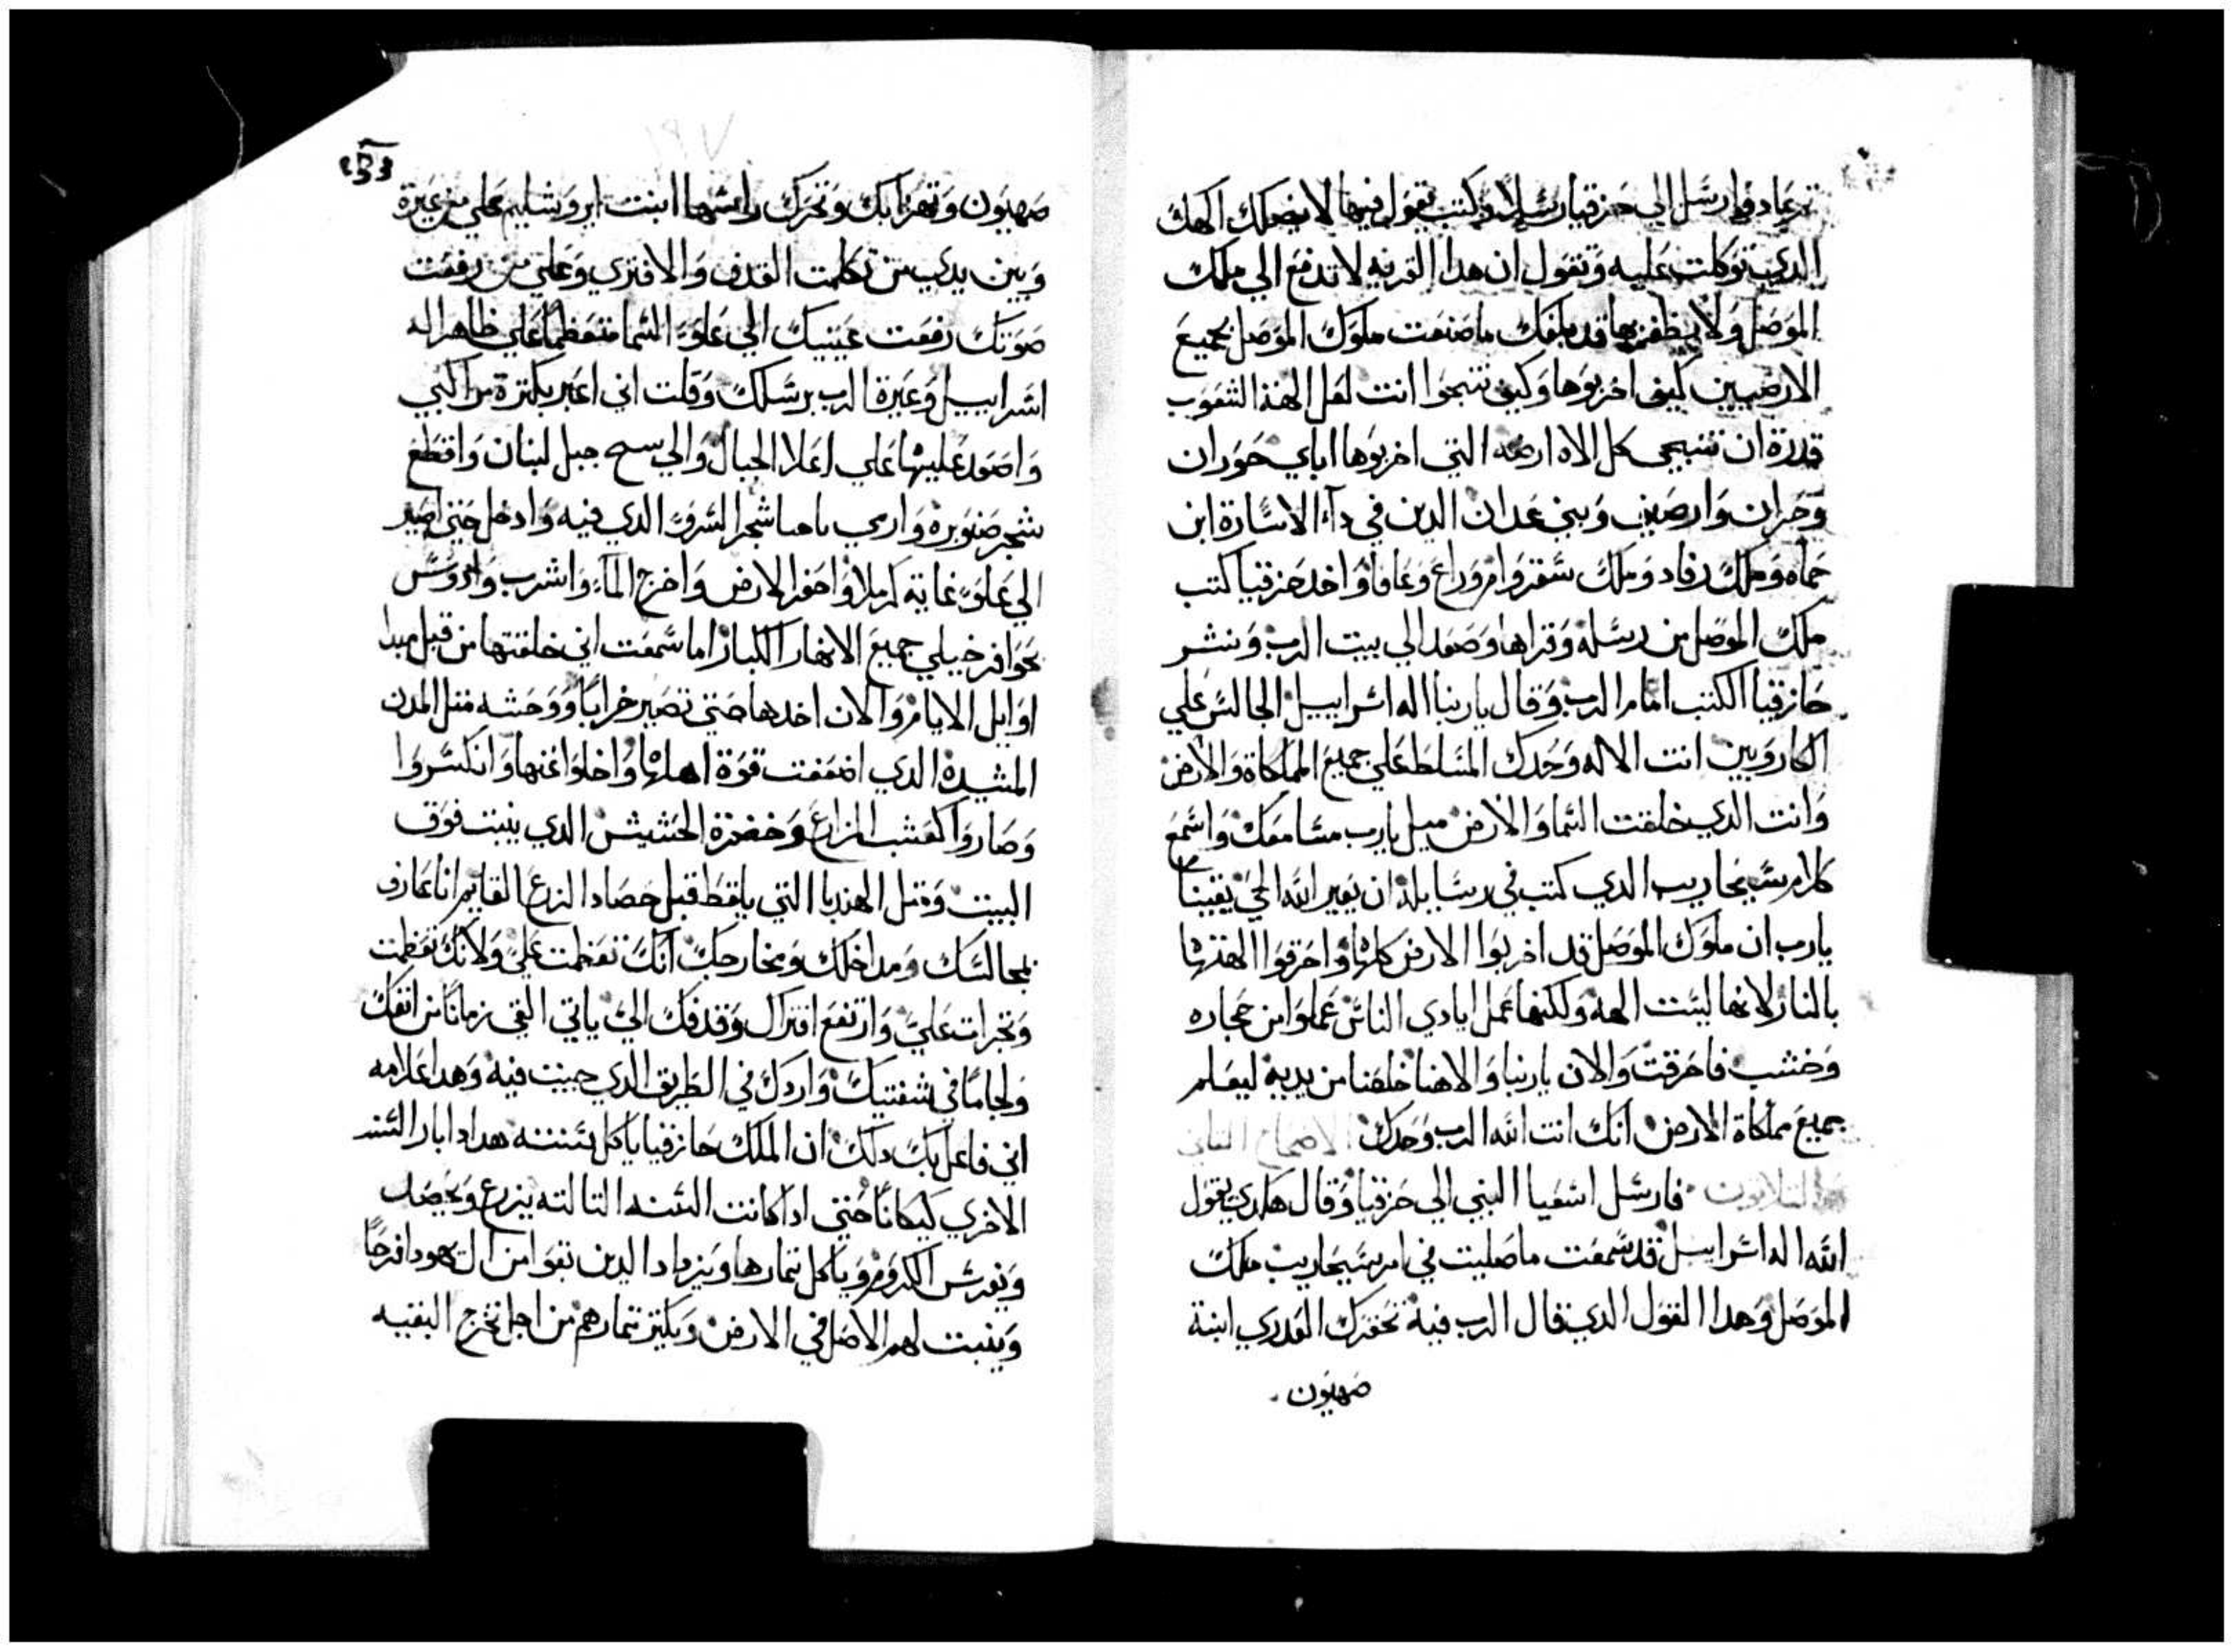 ترعاد وارسل الي حزقيا رسلا وكتب يقول فيها لا يضلك الهك
الدي توكلت عليه وتقول ان هدا القريه لا تدفع الي ملك
الموصل ولا يظفر بها قد بلغك ما صنعت ملوك الموصل بجميع
الارضيين كيف اخربوها وكيف تنجوا انت لعل الهة الشعوب
قدرة ان تنجي كل الاه ارضه التي اخربوها اباي حوران
وحران وارصف وبني عدان الدين في دآء الاسارة ابن
حماه وملك رفاد وملك سفروامروراع وعافا واخد حزقيا كتب
ملك الموصل من رسله وقراها وصعد الي بيت الرب ونشر
حازقيا الكتب امام الرب وقال ياربنا اله اسراييل الجالس علي
الكاروبين انت الاله وحدك المسلط علي جميع المملكاة والارض
وانت الدي خلقت السما والارض ميل يارب مسامعك واسمع
كلام سنيحاريب الدي كتب في رسايله ان يعير الله الحي يقينا
يارب ان ملوك الموصل قد اخربوا الارض كلها واحرقوا الهتها
بالنار لانها ليست الهه ولكنها عمل ايادي الناس عملوا من حجاره
وخشب فاحرقت والان ياربنا والاهنا خلصنا من يديه ليعلم
جميع مملكاة الارض انك انت الله الرب وحدك الاصحاح التاني
والتلاتون فارسل اشعيا النبي الي حزقيا وقال هكدي يقول
الله اله اسراييل قد سمعت ما صليت في امر سنيحاريب ملك
الموصل وهدا القول الدي قال الرب فيه تحقرك العدري ابنة
صهيون
٢٥٣
صهيون وتهزابك وتحرك راسها ابنت ايروشليم علي من عيرة
وبين يدي من تكلمت القدف والافتري وعلي من رفعت
صوتك رفعت عينيك الي علو السما متعظما علي ظاهر اله
اسراييل وعيرة الرب برسلك وقلت اني اعبر بكترة مراكبي
واصعد عليها علي اعلا الجبال والي سح جبل لبنان واقطع
شجر صنوبره واري ياحسا شجر السرو الدي فيه وادخل حتي اصير
الي علو غاية كرملا واحفر الارض واخرج المآء واشرب وادوس
بحوافر خيلي جميع الانهار الكبار اما سمعت اني خلقتها من قبل مبدا
اوايل الايام والان اخدها حتي تصير خرابا ووحشه متل المدن
المشيدة الدي اضعفت قوة اهلها واخلوا عنها وانكسروا
وصاروا كعشب المزارع وخضرة الحشيش الدي ينبت فوق
البيت ومتل الهندبا التي يلقط قبل حصاد الزرع القايم انا عارف
بمجالسك ومداخلك ومخارجك انك تعظمت علي ولانك تعظمت
وتجرات علي وارتفع افتراك وقدفك الي ياتي القي زمانا من انفك
ولجاما في شفتيك واردك في الطريق الدي جيت فيه وهدا علامه
اني فاعل بك دلك ان الملك حازقيا ياكل سنته هدا دا بار السنه
الاخري كيكانا حتي ادا كانت السنه التالته يزرع ويحصد
ويغرس الكروم وياكل تمارها ويزداد الدين بقوا من ال يهودا فرحا
وينبت لهم الاصل في الارض ويكتر تمارهم من اجل تخرج البقيه